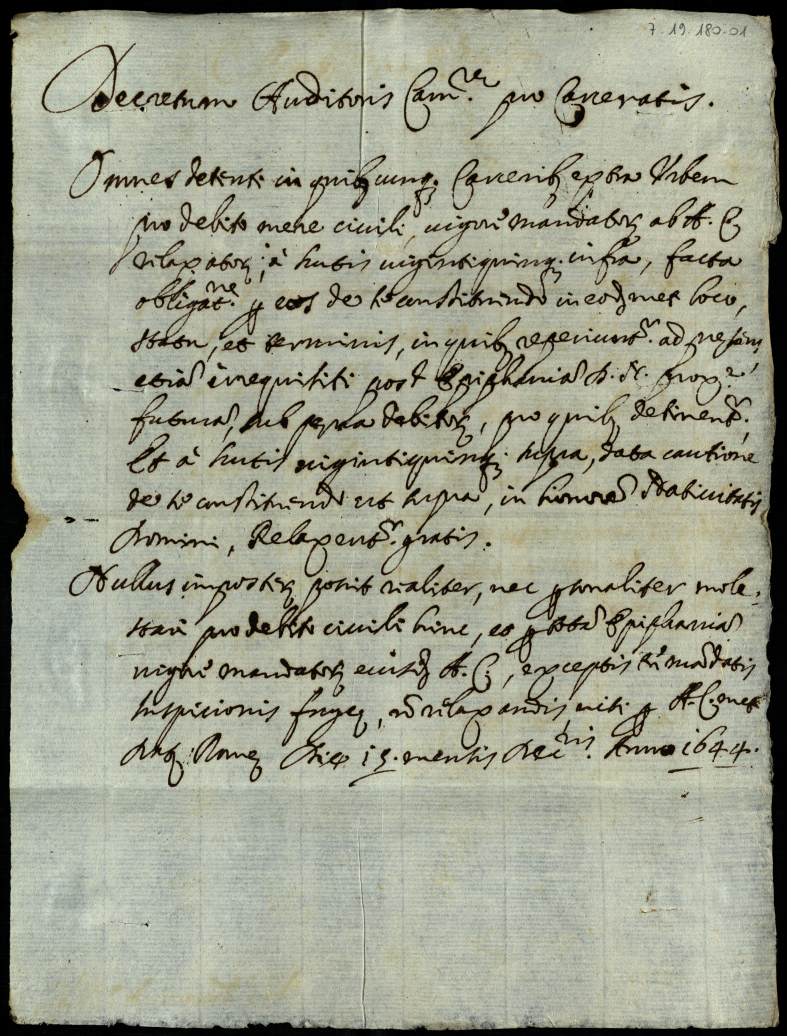 7.19.180.01
Decretum Auditoris Cam.re pro Carceratis.
Omnes detenti in quibuscunq; Carcerib; extra Urbem
pro debito mere civili, vigore mandator; ab A. C.
relaxator; à scutis vigintiquinq; infra, facta
obligat.ne p eos de se constituendo in eodmet loco,
statu, et terminis, in quib; reperiunt.r ad
etiã irrequisiti post Epiphaniã D. N. prox.e
futurã, sub pena debitor;, pro quib; detinent.r
Et à scutis vigintiquinq; supra, data cautione
de se constituendo ut supra, in honorẽ Nativitatis
Domini, Relaxent.r gratis.
Nullus imposter; possit realiter, nec psonaliter mole-
stari pro debito civili hinc, et p totã Epiphaniã
vigore mandator; eiusd; A. C., exceptis tñ mãdatis
suspicionis fuge, nõ relaxandis, nisi p A. C. met
Dat; Rome Die 15. mensis Dec.ris Anno 1644.